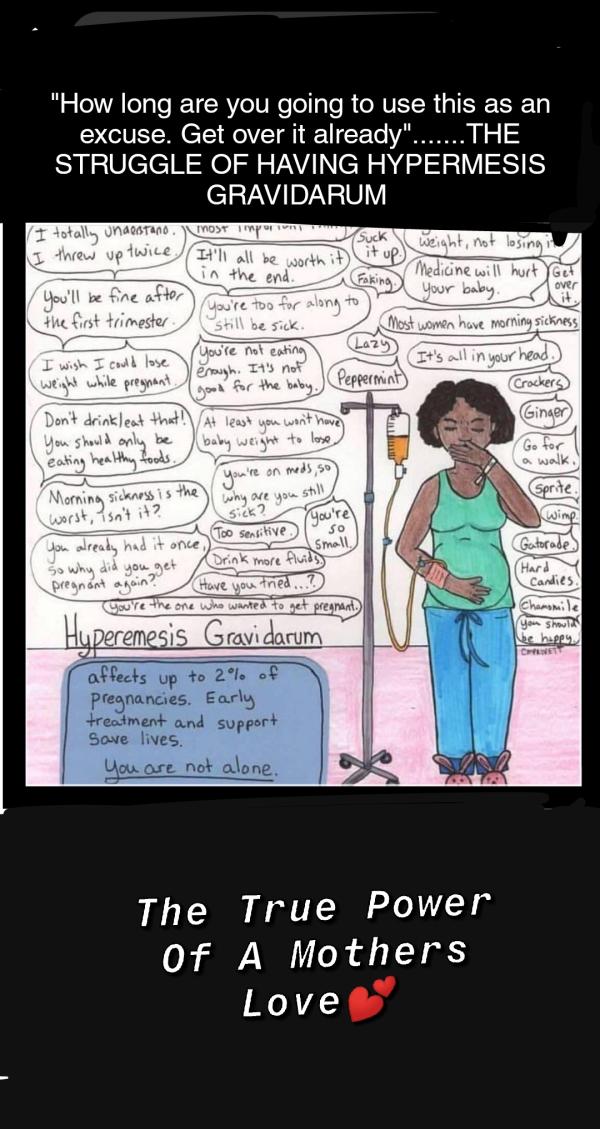 "How long are you going to use this as an
excuse. Get over it already".......THE
STRUGGLE OF HAVING HYPERMESIS
GRAVIDARUM
I totally understand.
I threw up twice.
most important
It'll all be worth it
in the end.
Suck
it up.
weight, not losing it
Faking.
Medicine will hurt
your baby.
Get
over
it.
You'll be fine after
the first trimester.
You're too far along to
still be sick.
Most women have morning sickness
Lazy
It's all in your head.
I wish I could lose
weight while pregnant.
You're not eating
enough. It's not
good for the baby.
Peppermint
Crackers
Ginger
Don't drink/eat that!
You should only be
eating healthy foods.
At least you won't have
baby weight to lose.
Go for
a walk.
Morning sickness is the
worst, isn't it?
You're on meds, so
why are you still
sick?
Sprite.
You're
so
small.
Wimp.
Too sensitive.
You already had it once,
so why did you get
pregnant again?
Drink more fluids.
Gatorade.
Have you tried...?
Hard
Candies.
You're the one who wanted to get pregnant.
Chamomile
You should
be happy.
Hyperemesis Gravidarum
affects up to 2% of
pregnancies. Early
treatment and support
save lives.
You are not alone.
The True Power
Of A Mothers
Love💕